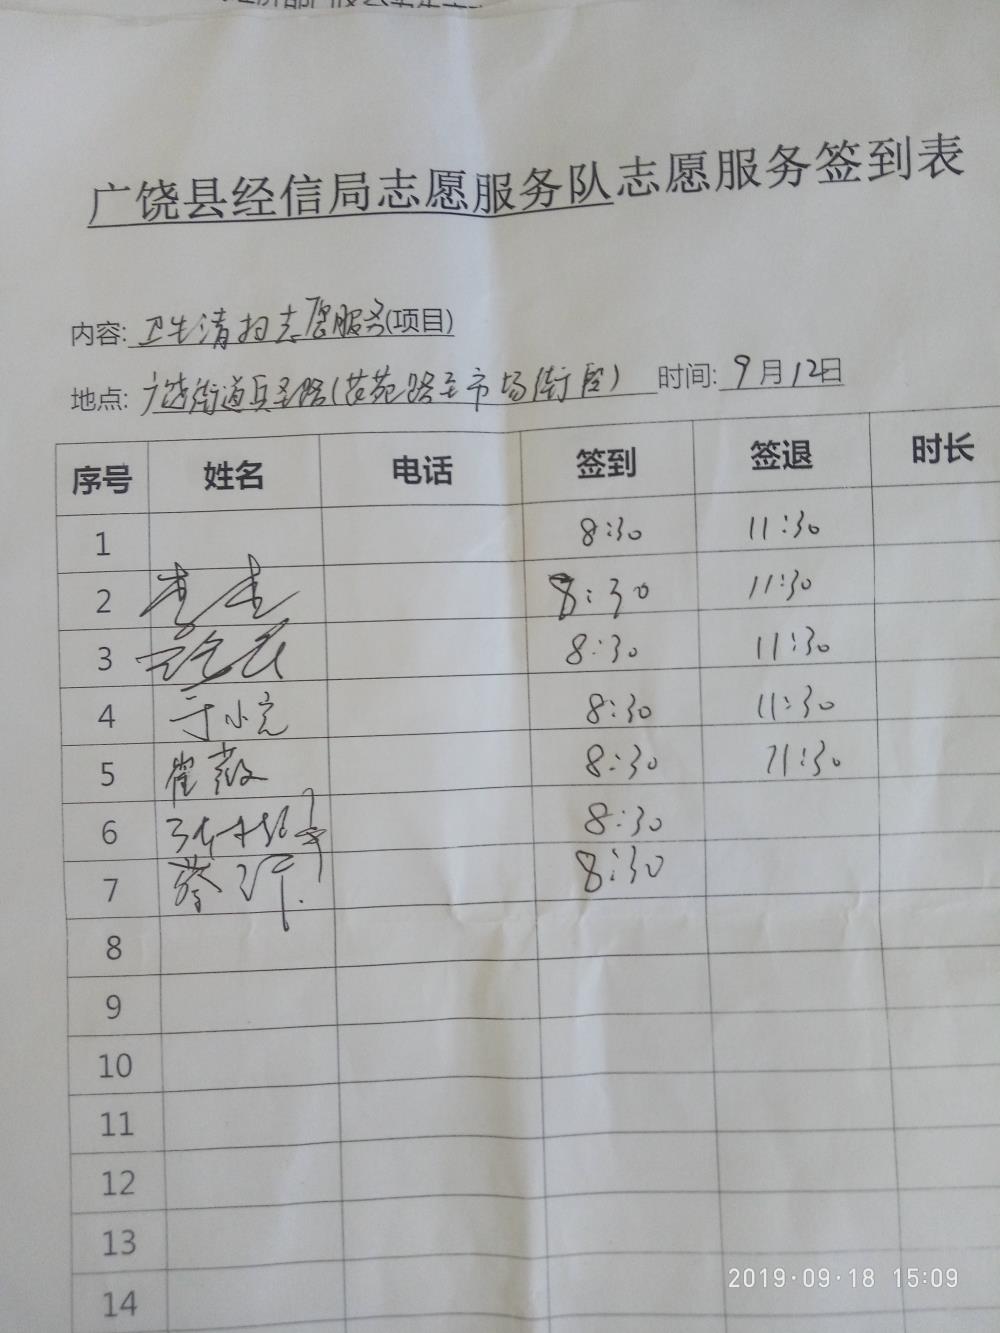 广饶县经信局志愿服务队志愿服务签到表
内容: 卫生清扫志愿服务(项目)
地点: 广饶街道兵圣路(花苑路至市场街段) 时间: 9月12日
序号 姓名 电话 签到 签退 时长
1 8:30 11:30
2 8:30 11:30
3 8:30 11:30
4 于小亮 8:30 11:30
5 崔薇 8:30 11:30
6 8:30
7 8:30
8
9
10
11
12
13
14
2019·09·18 15:09